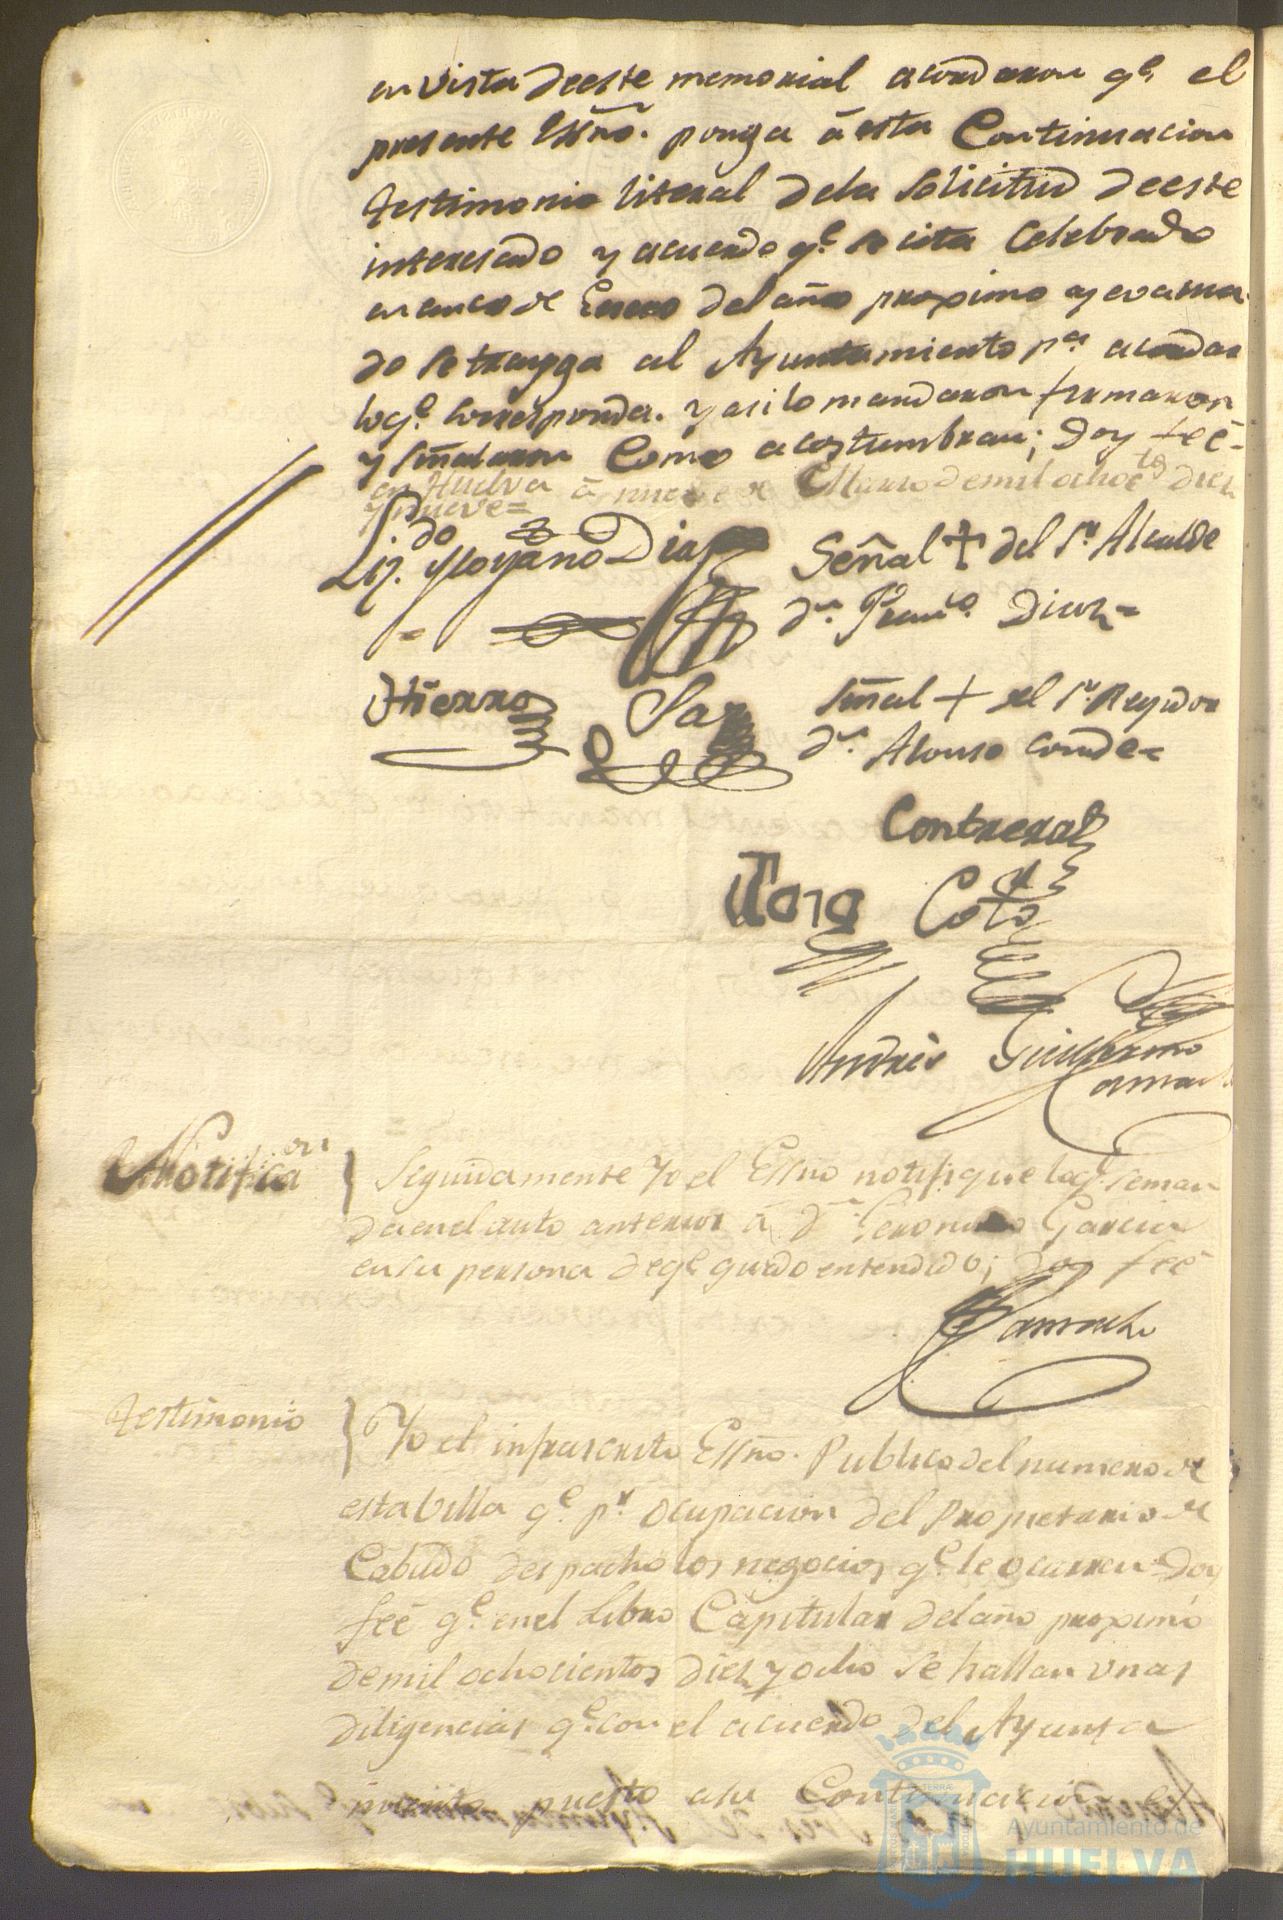 en vista deeste memorial acordaron qe. el
presente Essno. ponga á esta Continuacion
testimonio literal dela Solicitud deeste
interesado y acuerdo qe. se cita Celebrado
en de Enero del año proximo y evacua
do se traygga al Ayuntamiento pa. acordar
loqe. Corresponda. y asi lo mandaron firmaron
y Señalaron Como acostumbran; Doy feé-
en Huelva á nueve de Marzo demil ochoctos. diez
y nueve=
Lizdo. Moyano Diaz Señal + del Sr. Alcalde
= dn. Franco. Diaz=
Hierro Saz Señal + del Sr. Regidor
dn. Alonso Conde=
Contreras
Toro Coto
Andrés Guillermo
Camacho
Notificaon. Seguidamente Yo el Essno notifique loqe. seman
da en el auto anterior á Dn. Geronimo Garcia
en su persona deqe. quedo entendido; Doy feé
Camacho
Testimonio Yo el infrascrito Essno. Publico del numero de
esta Villa qe. pr. ocupacion del Propietario de
Cabildo despacho los negocios qe. le ocurren Doy
feé qe. en el Libro Capitular del año proximo
demil ochocientos diez y ocho se hallan unas
diligencias qe. con el acuerdo del Ayunta
miento puesto asu Continuacion
Ayuntamiento de
HUELVA